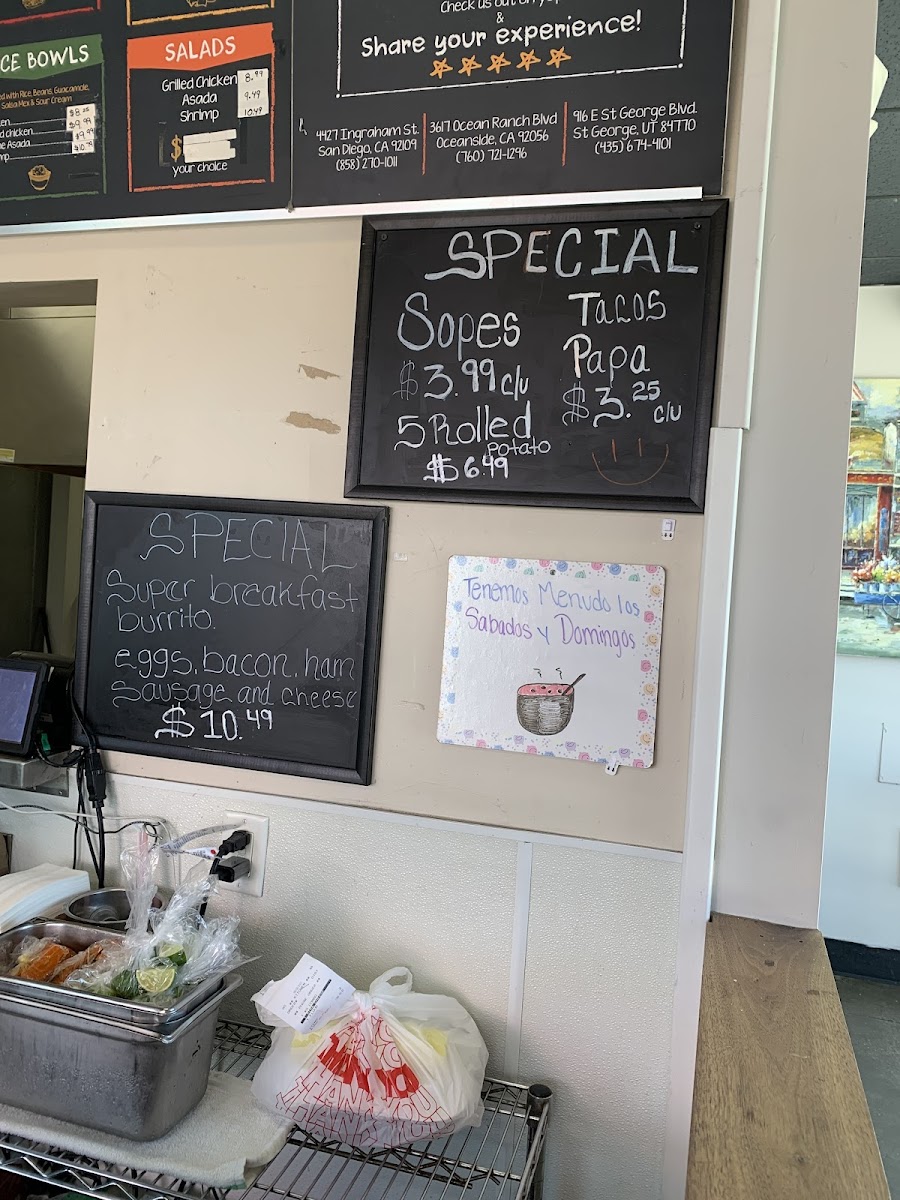 CE BOWLS
ed with Rice, Beans, Guacamole,
Salsa Mex & Sour Cream
$8.25
chicken $9.99
Asada $9.99
$10.79
SALADS
Grilled Chicken 8.99
Asada 9.49
Shrimp 10.49
$
your choice
Check us out on
&
Share your experience!
4427 Ingraham St.
San Diego, CA 92109
(858) 270-1011
3617 Ocean Ranch Blvd
Oceanside, CA 92056
(760) 721-1296
916 E St George Blvd.
St George, UT 84770
(435) 674-4101
SPECIAL
Sopes
$3.99 c/u
5 Rolled
Potato
$6.49
Tacos
Papa
$3.25
c/u
SPECIAL
Super breakfast
burrito.
eggs, bacon, ham
Sausage and cheese
$10.49
Tenemos Menudo los
Sabados y Domingos
THANK YOU